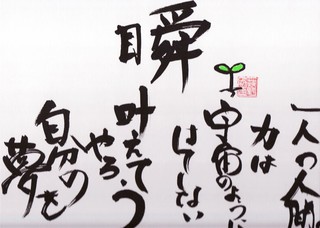 瞬
一人の人間の
力は
宇宙のように
はてしない
叶えて
やろう
自分の
夢を